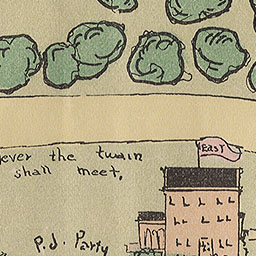 ever the twain
shall meet.
EAST
P.J. Party